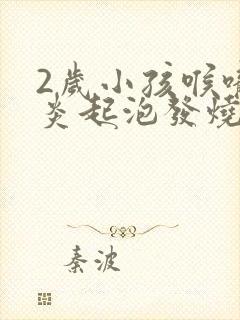 2歲小孩喉嚨
炎起泡發燒
秦波